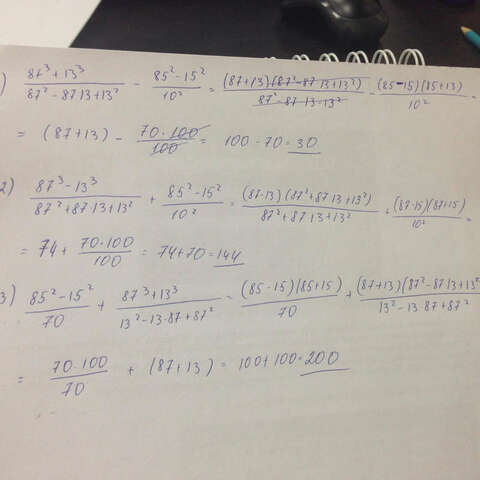 ) (87³+13³)/(87²-87·13+13²) - (85²-15²)/10² = (87+13)(87²-87·13+13²)/(87²-87·13+13²) - (85-15)(85+13)/10² =
= (87+13) - (70·100)/100 = 100-70=30
2) (87³-13³)/(87²+87·13+13²) + (85²-15²)/10² = (87-13)(87²+87·13+13²)/(87²+87·13+13²) + (87-15)(87+15)/10² =
= 74 + (70·100)/100 = 74+70=144
3) (85²-15²)/70 + (87³+13³)/(13²-13·87+87²) = (85-15)(85+15)/70 + (87+13)(87²-87·13+13²)/(13²-13·87+87²)
= (70·100)/70 + (87+13) = 100+100=200